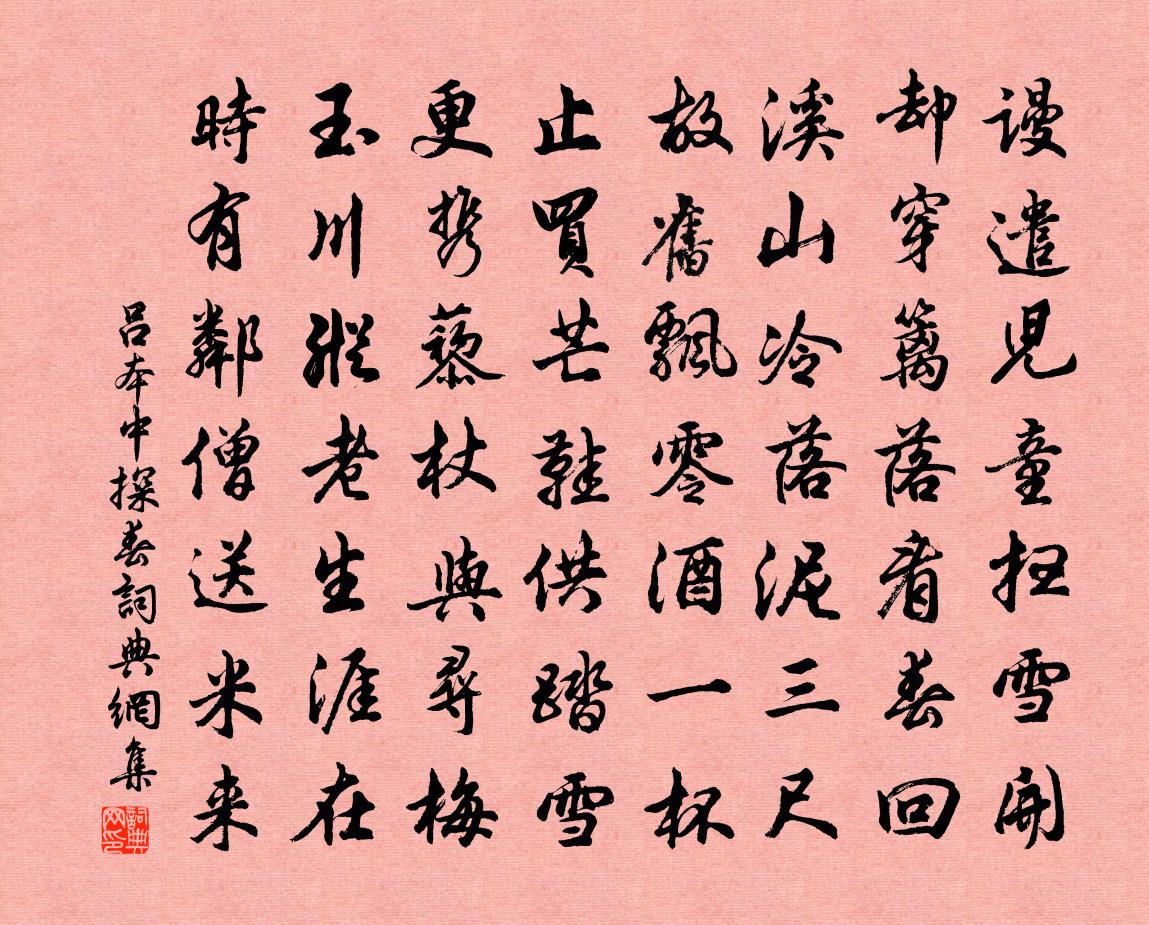 謾遣児童扫雪開
却穿籬落看春回
溪山冷落泥三尺
故舊飄零酒一杯
止買芒鞋供踏雪
更携藜杖與尋梅
玉川縱老生涯在
時有鄰僧送米来
呂本中探春詞典網集
詞典网印